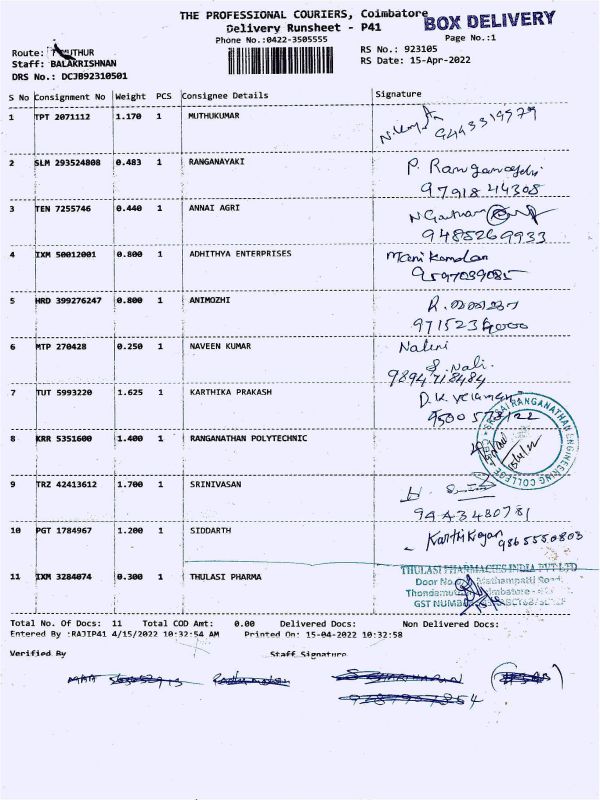 THE PROFESSIONAL COURIERS, Coimbatore
BOX DELIVERY
Delivery Runsheet - P41
Page No.:1
Phone No.:0422-3505555
Route: MUTHUR
RS No.: 923105
Staff: BALAKRISHNAN
RS Date: 15-Apr-2022
DRS No.: DCJB92310501
S No Consignment No Weight PCS Consignee Details Signature
1 TPT 2071112 1.170 1 MUTHUKUMAR
9443319579
2 SLM 293524808 0.483 1 RANGANAYAKI P. Ranganayaki
9791844308
3 TEN 7255746 0.440 1 ANNAI AGRI
9485269933
4 IXM 50012001 0.800 1 ADHITHYA ENTERPRISES Mani Kandan
9597039085
5 HRD 399276247 0.800 1 ANIMOZHI
9715234000
6 MTP 270428 0.250 1 NAVEEN KUMAR Nalini
S. Nali.
9894718484
7 TUT 5993220 1.625 1 KARTHIKA PRAKASH D.K. Velamani
9500573122
8 KRR 5351600 1.400 1 RANGANATHAN POLYTECHNIC
SRI RANGANATHAN ENGINEERING COLLEGE
9 TRZ 42413612 1.700 1 SRINIVASAN
9443480781
10 PGT 1784967 1.200 1 SIDDARTH Karthikeyan 9865550803
11 IXM 3284074 0.300 1 THULASI PHARMA THULASI PHARMACIES INDIA PVT LTD
Door No. Mathampatti Road,
Coimbatore
GST NUMBER
Total No. Of Docs: 11 Total COD Amt: 0.00 Delivered Docs: Non Delivered Docs:
Entered By :RAJIP41 4/15/2022 10:32:54 AM Printed On: 15-04-2022 10:32:58
Verified By Staff Signature